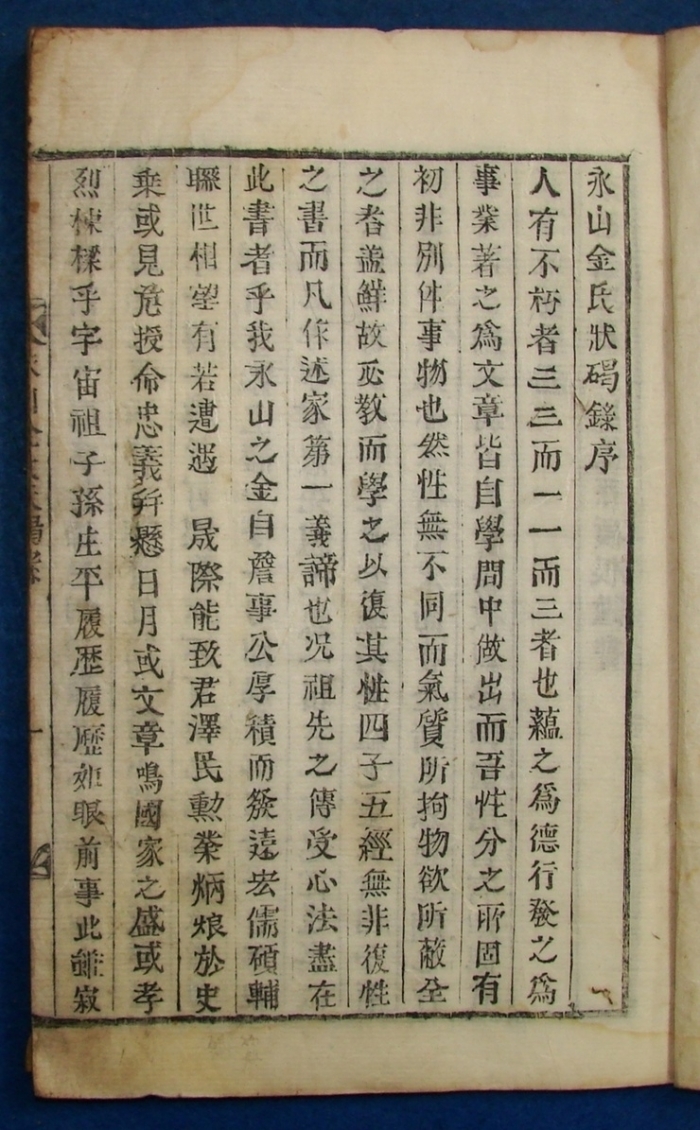 永山金氏狀碣錄序
人有不朽者三三而一一而三者也蘊之爲德行發之爲
事業著之爲文章皆自學問中做出而吾性分之所固有
初非別件事物也然性無不同而氣質所拘物欲所蔽全
之者盖鮮故必敎而學之以復其性四子五經無非復性
之書而凡作述家第一義諦也况祖先之傳受心法盡在
此書者乎我永山之金自詹事公厚積而發遠宏儒碩輔
聯世相望有若遭遇 晟際能致君澤民勳業炳烺於史
乘或見危授命忠義幷懸日月或文章鳴國家之盛或孝
烈棟樑乎宇宙祖子孫生平履歷履歷如眼前事此雖寂